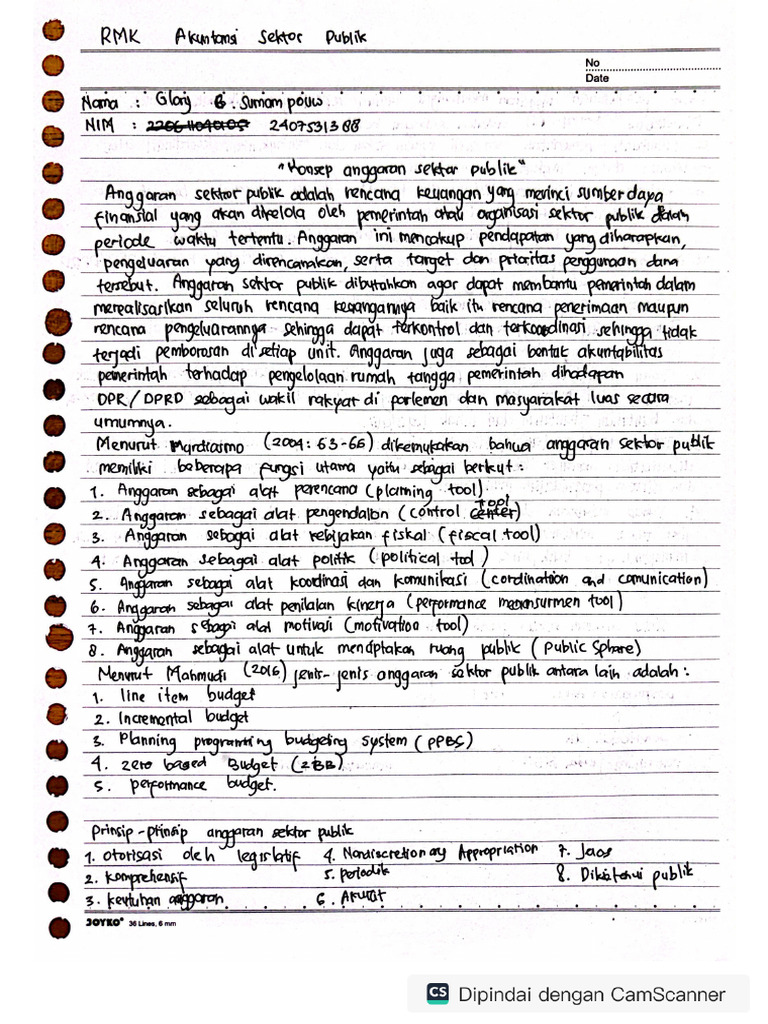 RMK Akuntansi Sektor Publik
No
Date
Nama : Glory G. Sumampouw
NIM : 220611040105 2407531388
"Konsep anggaran sektor publik"
Anggaran sektor publik adalah rencana keuangan yang merinci sumber daya
finansial yang akan dikelola oleh pemerintah atau organisasi sektor publik dalam
periode waktu tertentu. Anggaran ini mencakup pendapatan yang diharapkan,
pengeluaran yang direncanakan, serta target dan prioritas penggunaan dana
tersebut. Anggaran sektor publik dibutuhkan agar dapat membantu pemerintah dalam
merealisasikan seluruh rencana keuangannya baik itu rencana penerimaan maupun
rencana pengeluarannya sehingga dapat terkontrol dan terkoordinasi sehingga tidak
terjadi pemborosan di setiap unit. Anggaran juga sebagai bentuk akuntabilitas
pemerintah terhadap pengelolaan rumah tangga pemerintah dihadapan
DPR/DPRD sebagai wakil rakyat di parlemen dan masyarakat luas secara
umumnya.
Menurut Mardiasmo (2004: 63-66) dikemukakan bahwa anggaran sektor publik
memiliki beberapa fungsi utama yaitu sebagai berikut :
1. Anggaran sebagai alat perencana (planning tool)
2. Anggaran sebagai alat pengendalian (control center tool)
3. Anggaran sebagai alat kebijakan fiskal (fiscal tool)
4. Anggaran sebagai alat politik (political tool)
5. Anggaran sebagai alat koordinasi dan komunikasi (cordination and comunication)
6. Anggaran sebagai alat penilaian kinerja (performance meansurmen tool)
7. Anggaran sebagai alat motivasi (motivation tool)
8. Anggaran sebagai alat untuk menciptakan ruang publik (Public Sphare)
Menurut Mahmudi (2016) jenis-jenis anggaran sektor publik antara lain adalah :
1. line item budget
2. Incremental budget
3. Planning programming budgeting system (PPBS)
4. zero based Budget (ZBB)
5. performance budget.
Prinsip-prinsip anggaran sektor publik
1. otorisasi oleh legislatif 4. Nondiscretionary Appropriation 7. Jelas
2. komprehensif 5. periodik 8. Diketahui publik
3. keutuhan anggaran 6. Akurat
JOYKO 36 Lines, 6 mm
CS Dipindai dengan CamScanner